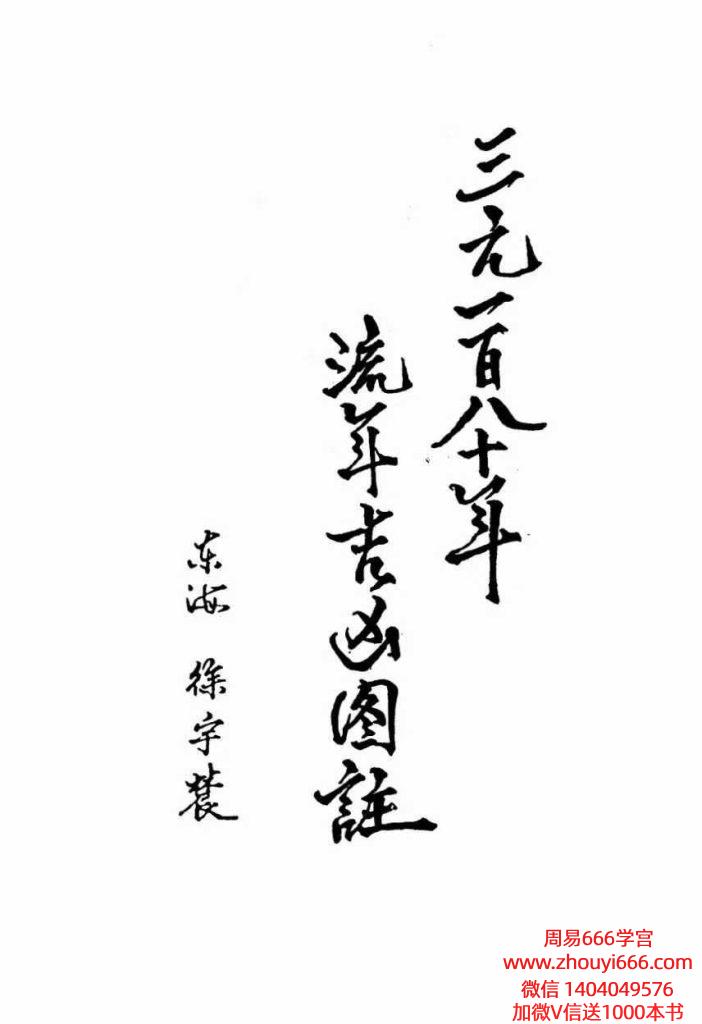 三元一百八十年
流年吉凶图註
东海 徐宇辳
周易666学宫
www.zhouyi666.com
微信 1404049576
加微V信送1000本书